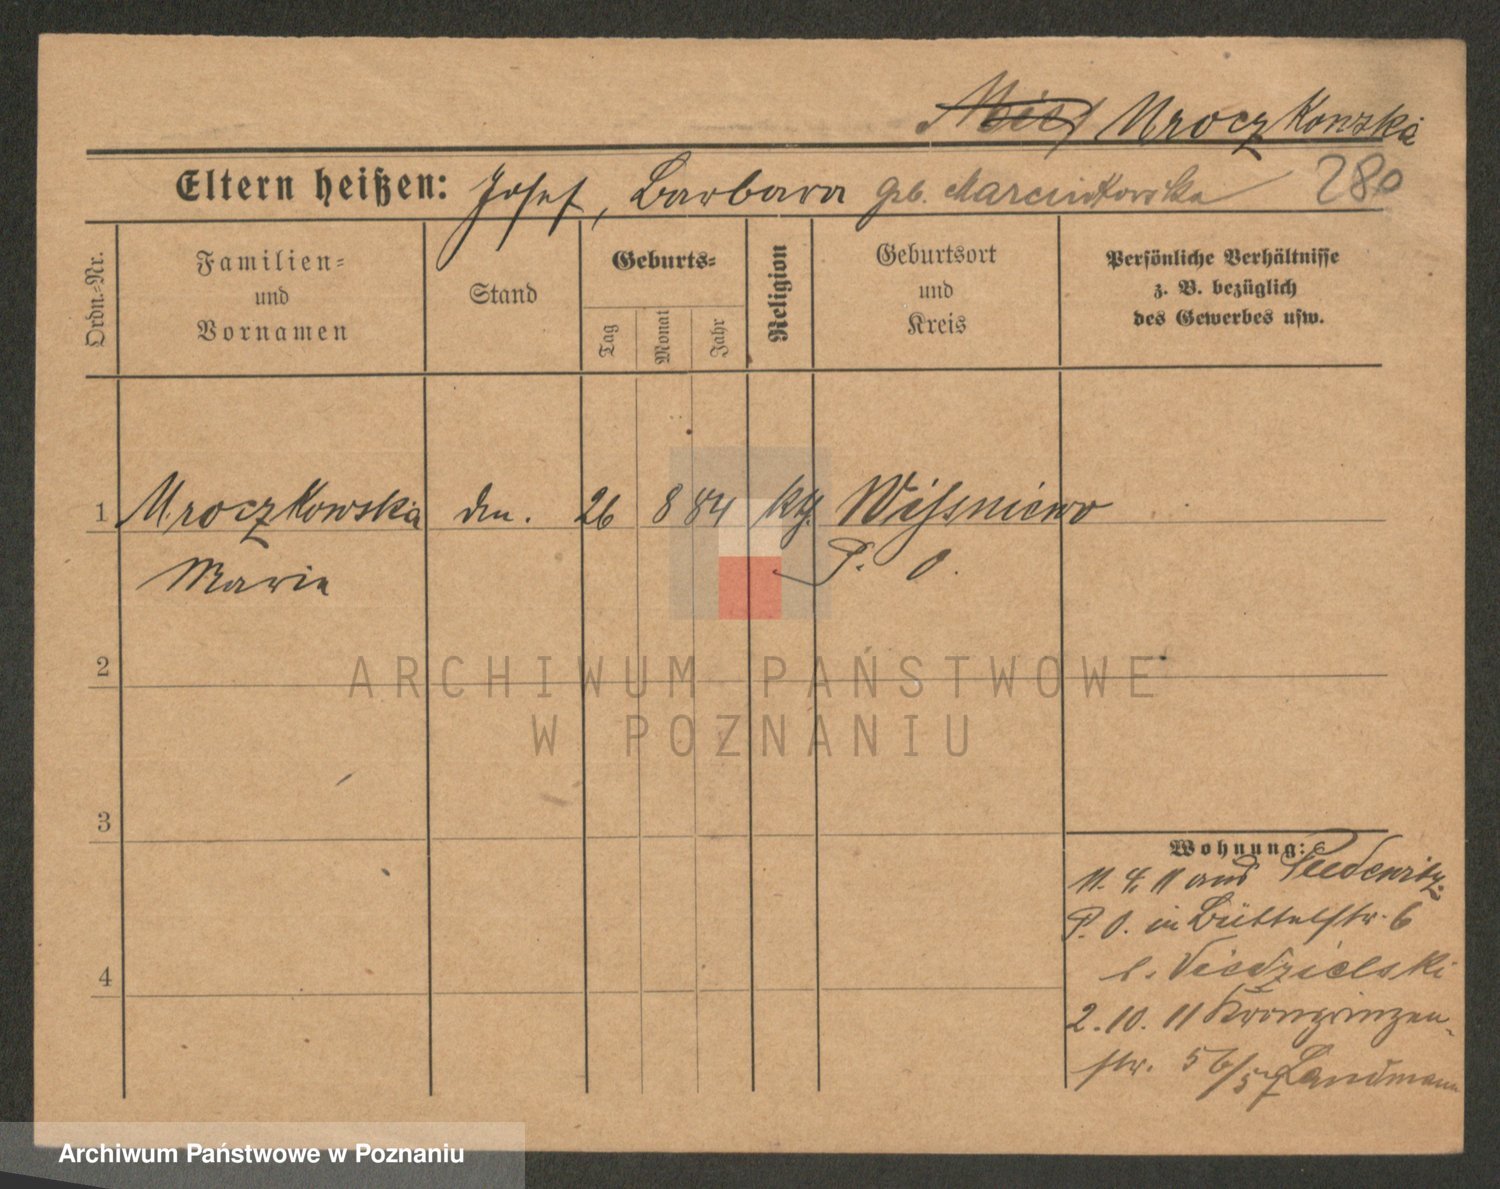 Mroczkowska
Eltern heißen: Josef, Barbara geb. Marcinkowska 280
Ordn.-Nr.
Familien-
und
Vornamen
Stand
Geburts-
Tag
Monat
Jahr
Religion
Geburtsort
und
Kreis
Persönliche Verhältnisse
z. B. bezüglich
des Gewerbes usw.
1 Mroczkowska 26 8 84 kth. Wissniewo
Marie P. O.
2
3
4
Wohnung:
11. 4. 11 aus Pudewitz
P. O. in Büttelstr. 6
b. Niedzielski
2. 10. 11 Kronprinzen-
str. 56/57 Landmann
ARCHIWUM PAŃSTWOWE
W POZNANIU
Archiwum Państwowe w Poznaniu